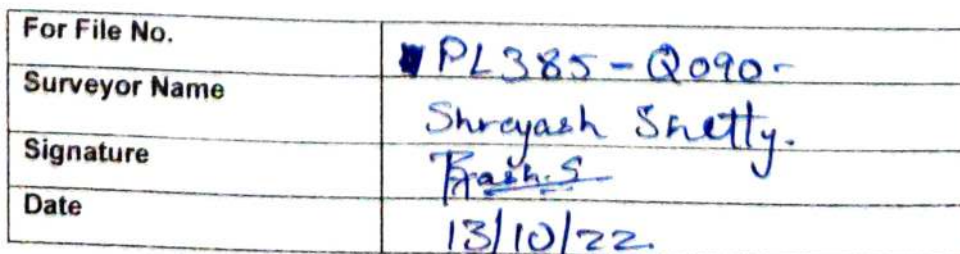 For File No. PL385-Q090-
Surveyor Name Shreyash Shetty.
Signature
Date 13/10/22.